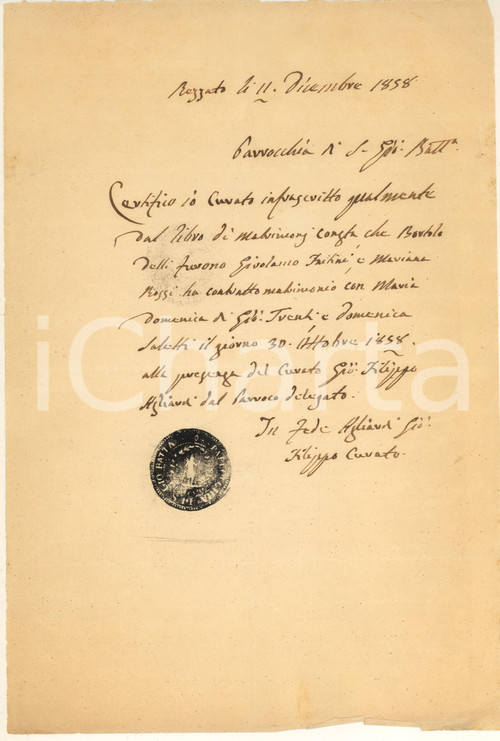 Rezzato li 11. Dicembre 1858
Parrocchia di S. Gio: Batt.a
Certifico io Curato infrascritto qualmente
dal libro di Matrimonj consta che Bortolo
delli furono Girolamo Fastini, e Mariana
Rossi ha contratto matrimonio con Maria
Domenica di Gio: Trenti e Domenica
Saletti il giorno 30. Ottobre 1858.
alla presenza del Curato Gio: Filippo
Agliardi dal Parroco delegato.
In Fede Agliardi Gio:
Filippo Curato.
GIO BATTA
iCharta